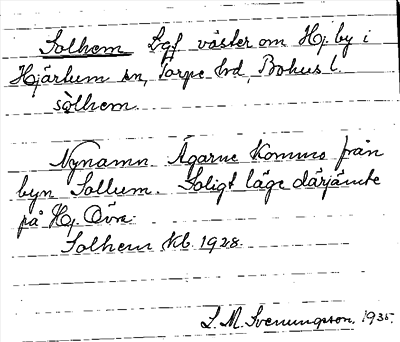 Solhem Lgf väster om Hj. by i
Hjärtum sn, Torpe hd, Bohus l.
sòlhem.
Nynamn. Ägarne komma från
byn Sollum. Soligt läge därjämte
på Hj. Övre.
Solhem kb. 1928.
L. M. Svenungsson. 1935.